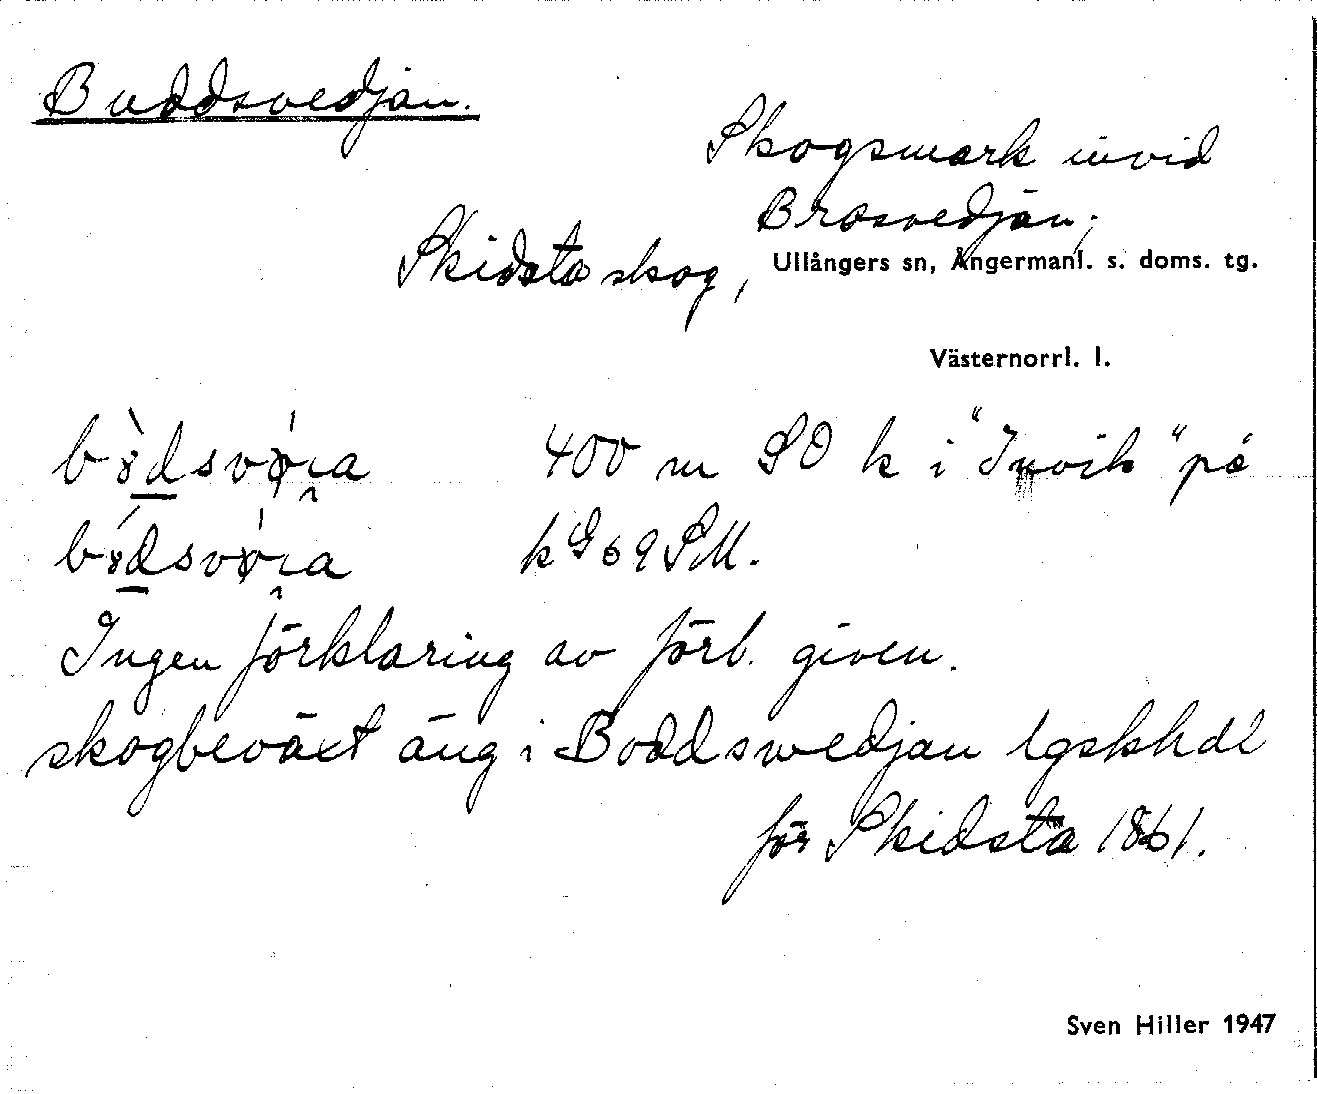 Buddsvedjan.
Skogsmark invid
Brosvedjan,
Skidsta skog, Ullångers sn, Ångermanl. s. doms. tg.
Västernorrl. l.
400 m SO k i "Invik" på
k G 69 SM.
Ingen förklaring av förb. given.
skogbeväxt äng i Boddswedjan lgskhdl
för Skidsta 1861.
Sven Hiller 1947